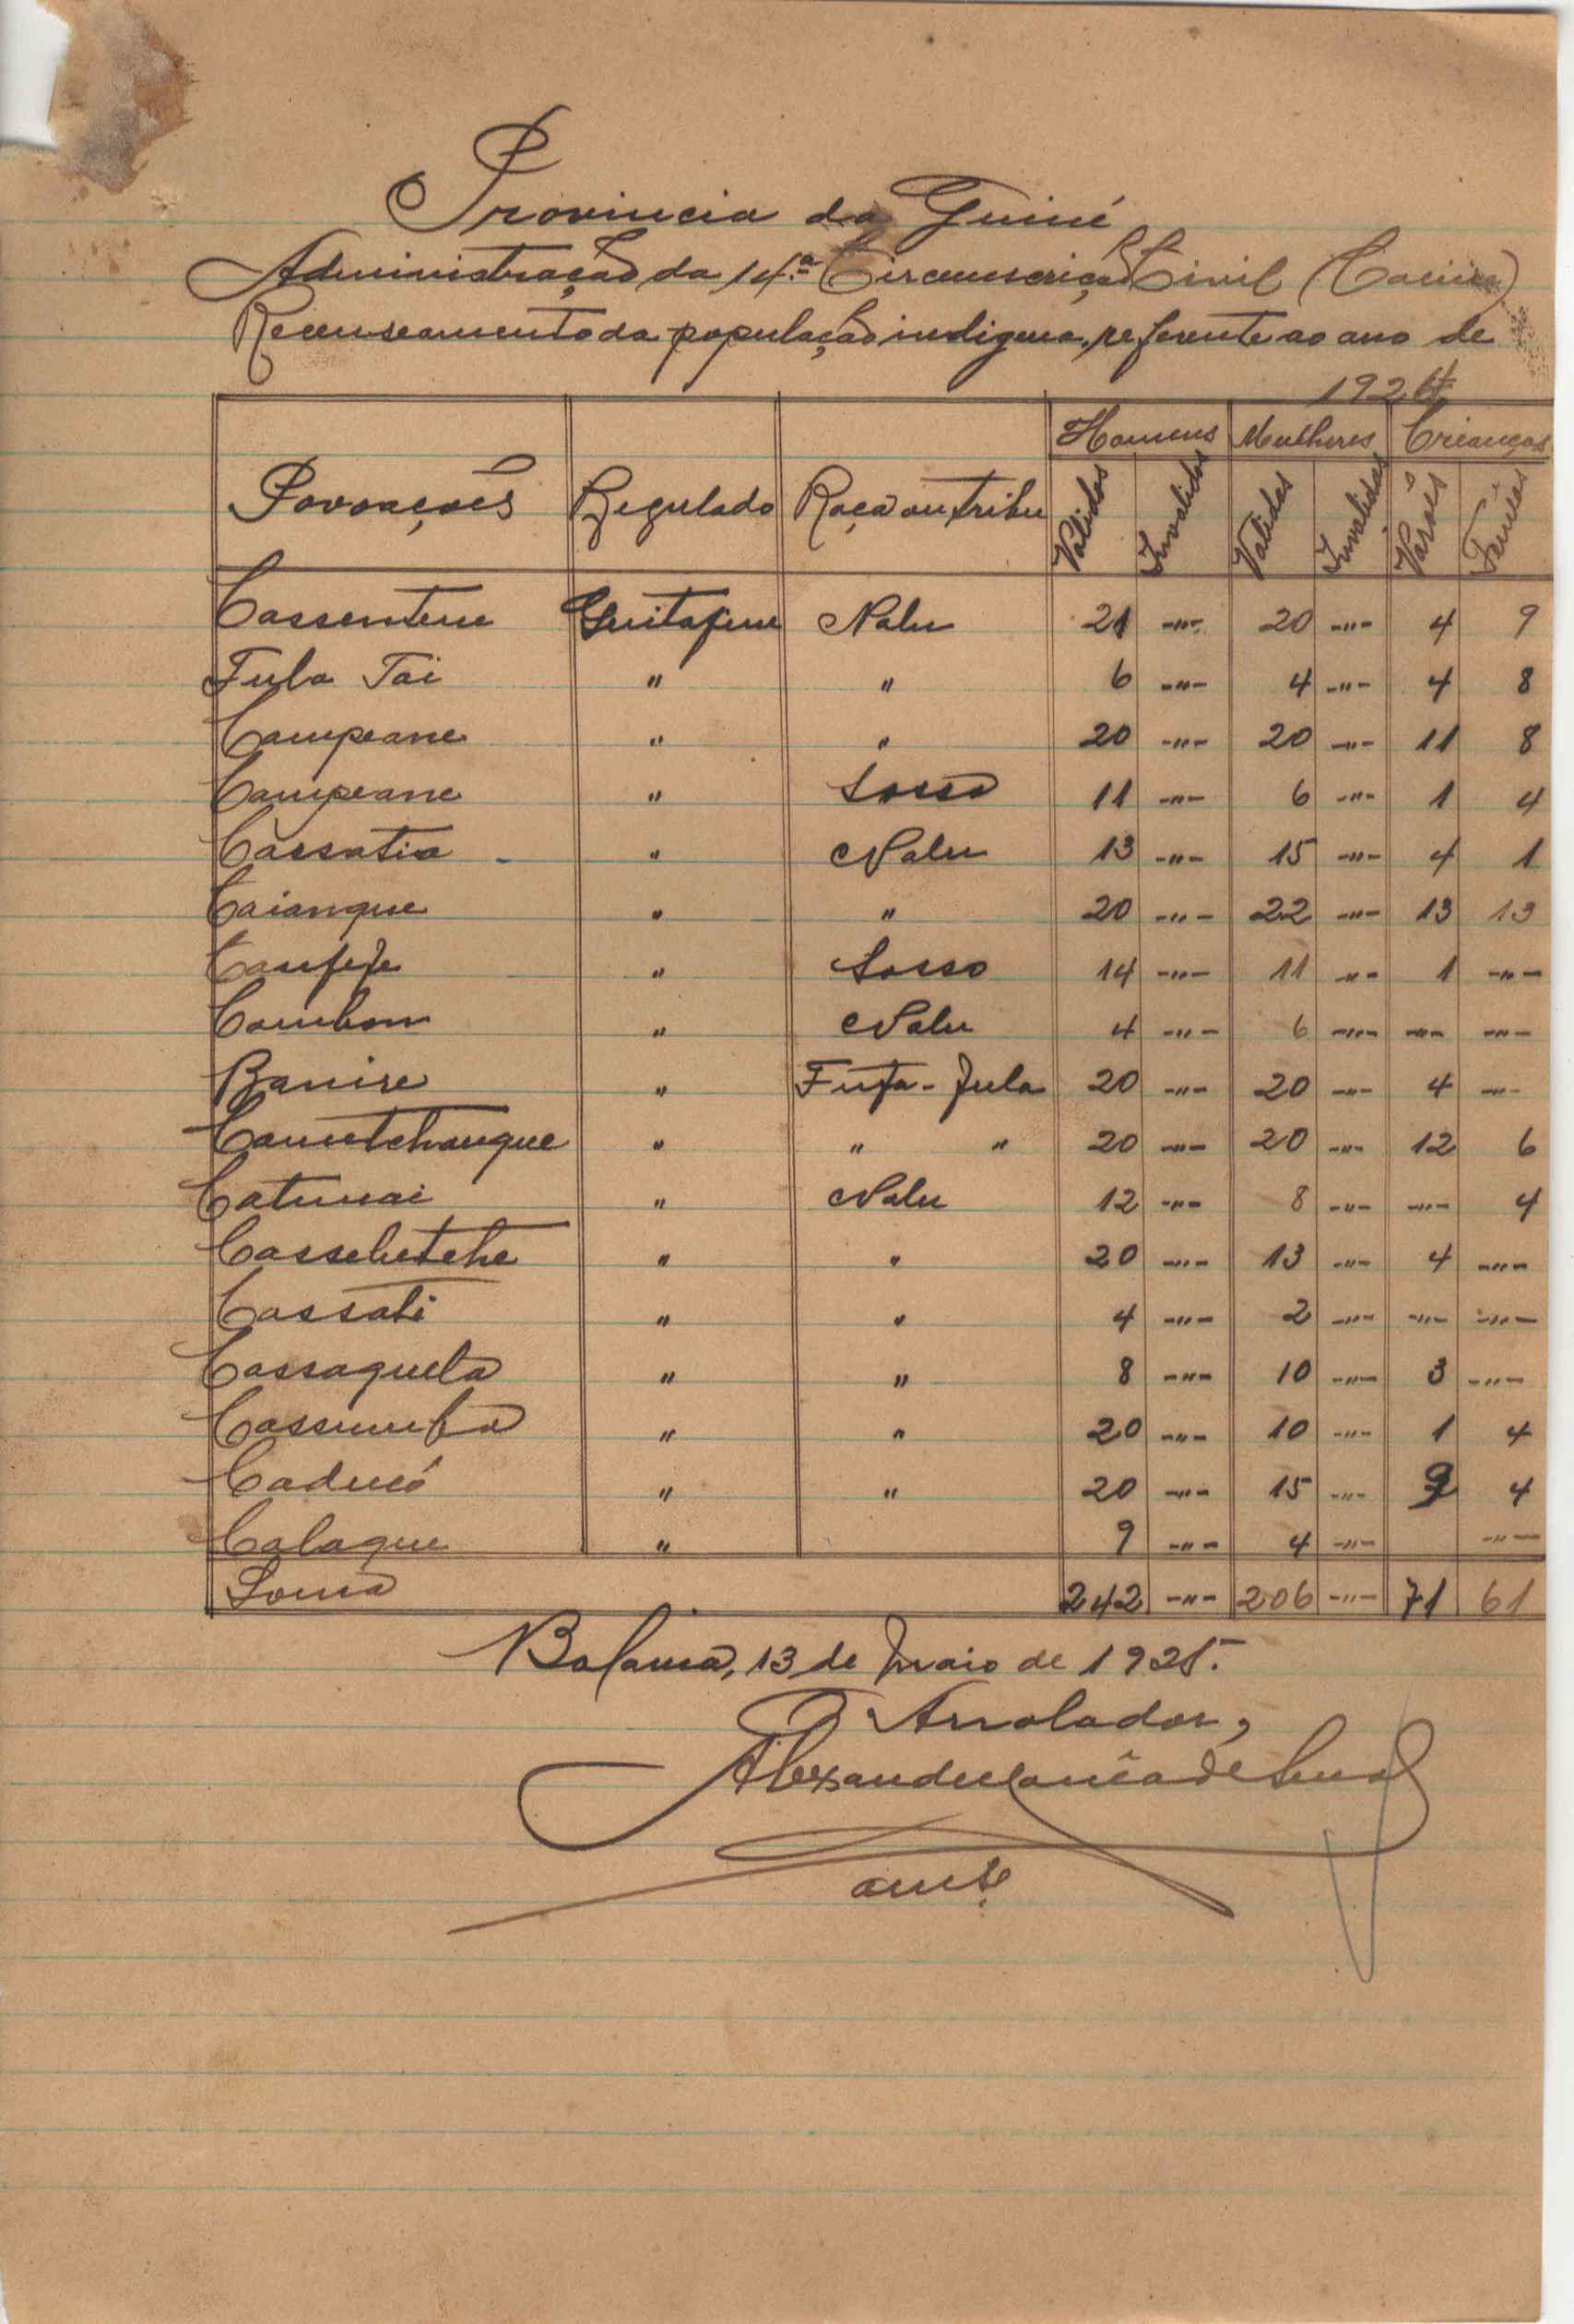 Provincia da Guiné
Administração da 14.ª Circunscrição Civil (Cacine)
Recenseamento da população indigena, referente ao ano de
1924
Povoações Regulado Raça ou tribu Homens Mulheres Crianças
Validos Invalidos Validas Invalidas Varões Femeas
Nalu 21 -"- 20 -"- 4 9
Fula Tai " " 6 -"- 4 -"- 4 8
Campeane " " 20 -"- 20 -"- 11 8
Campeane " Sosso 11 -"- 6 -"- 1 4
Cassatia " Nalu 13 -"- 15 -"- 4 1
Caianque " " 20 -"- 22 -"- 13 13
Canfefe " Sosso 14 -"- 11 -"- 1 -"-
Cambon " Nalu 4 -"- 6 -"- -"- -"-
Banire " Futa-Fula 20 -"- 20 -"- 4 -"-
Camtchanque " " " 20 -"- 20 -"- 12 6
Catunai " Nalu 12 -"- 8 -"- -"- 4
Cassebetche " " 20 -"- 13 -"- 4 -"-
Cassati " " 4 -"- 2 -"- -"- -"-
Cassaqueta " " 8 -"- 10 -"- 3 -"-
Cassumba " " 20 -"- 10 -"- 1 4
Caducó " " 20 -"- 15 -"- 9 4
Calaque " 9 -"- 4 -"- -"-
Soma 242 -"- 206 -"- 71 61
Bolama, 13 de Maio de 1925.
O Arrolador,
Alexandre de